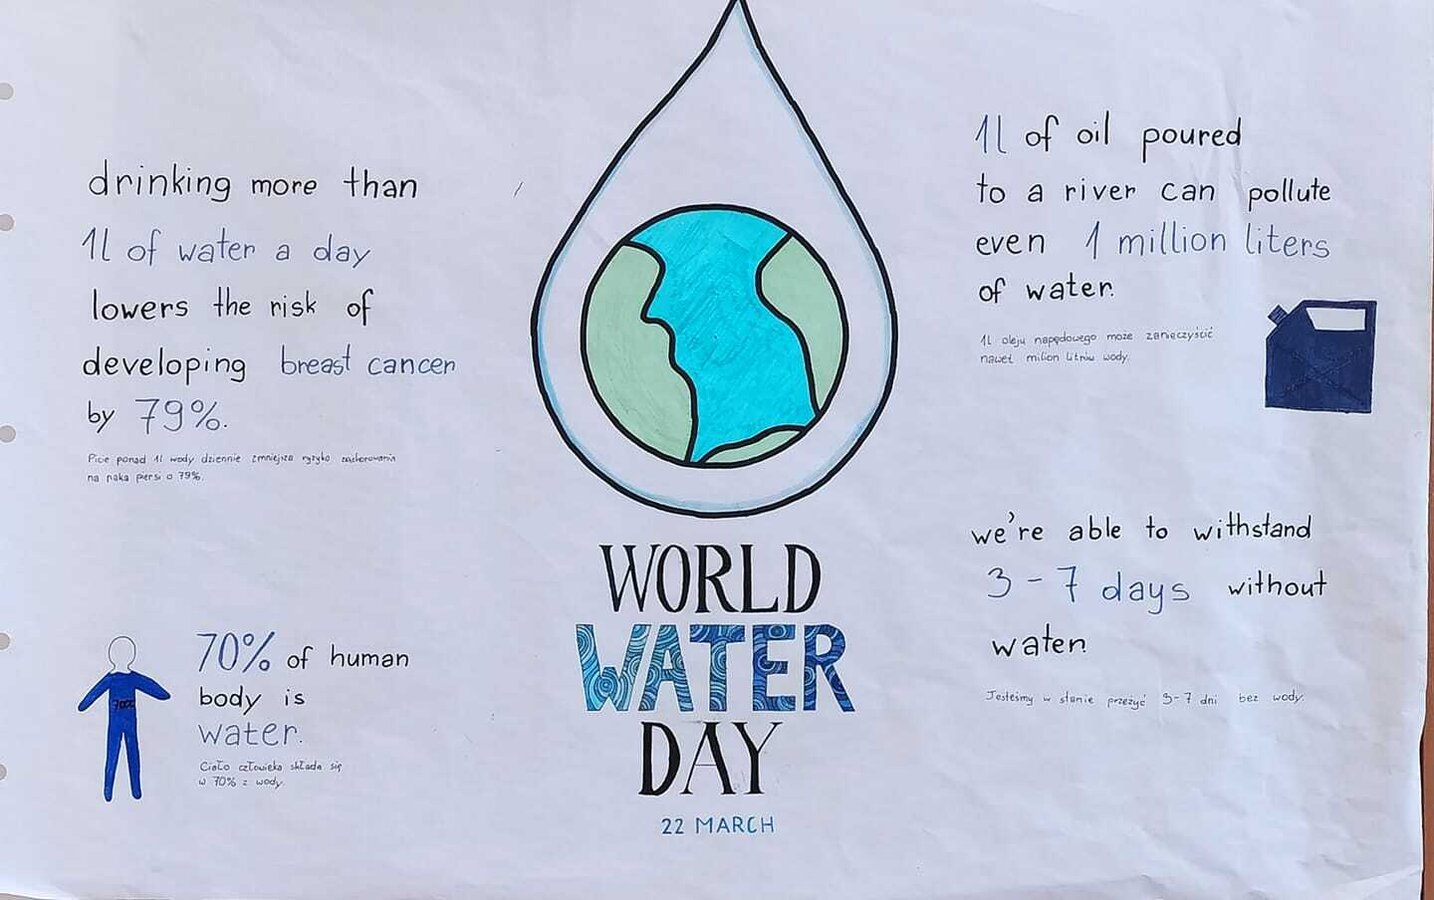 drinking more than
1l of water a day
lowers the risk of
developing breast cancer
by 79%.
Picie ponad 1l wody dziennie zmniejsza ryzyko zachorowania
na raka piersi o 79%.
70% of human
body is
water.
Ciało człowieka składa się
w 70% z wody.
70%
WORLD
WATER
DAY
22 MARCH
1l of oil poured
to a river can pollute
even 1 million liters
of water.
1l oleju napędowego może zanieczyścić
nawet milion litrów wody.
we're able to withstand
3-7 days without
water.
Jesteśmy w stanie przeżyć 3-7 dni bez wody.